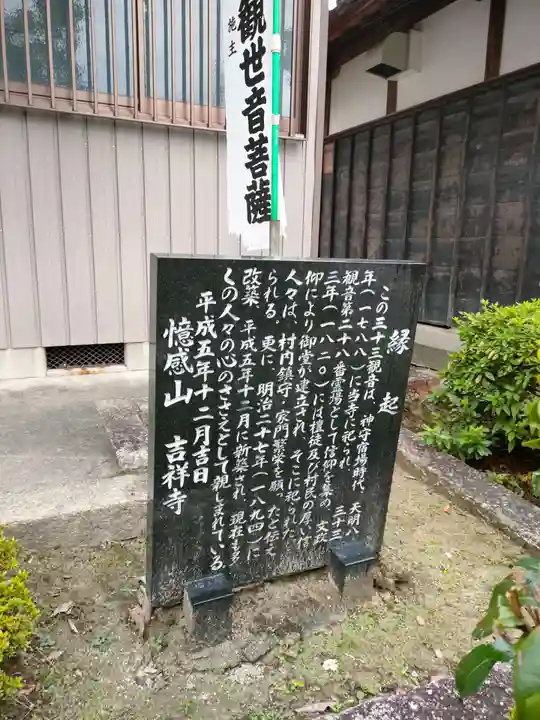 施主
観世音菩薩
縁起
この三十三観音は、神守宿場時代 天明八
年(一七八八)に当寺に祀られ、三十三
観音第二十八番霊場として信仰を集め 文政
三年(一八二〇)には檀徒及び村民の厚い信
仰により御堂が建立され、そこに祀られた。
人々は、村内鎮守・家門繁栄を願ったと伝え
られる。更に、明治二十七年(一八九四)に
改築、平成五年十二月に新築され、現在も多
くの人々の心のささえとして親しまれている。
平成五年十二月吉日
憶感山 吉祥寺